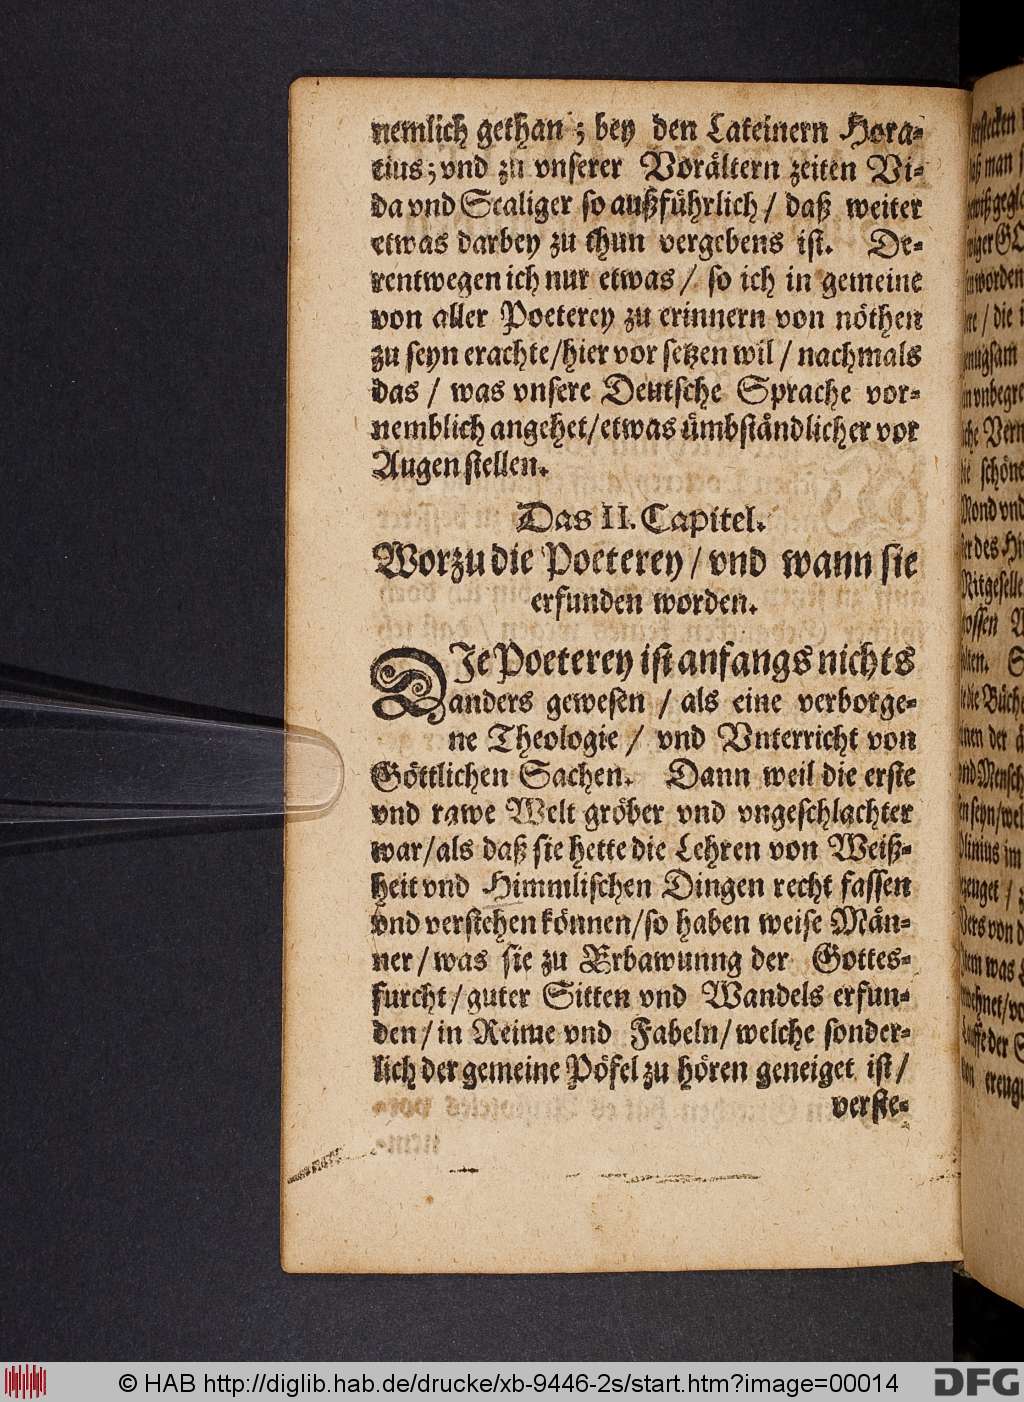 nemlich gethan ; bey den Lateinern Hora-
tius; vnd zu vnserer Vorältern zeiten Vi-
da vnd Scaliger so außführlich / daß weiter
etwas darbey zu thun vergebens ist. De-
rentwegen ich nur etwas / so ich in gemeine
von aller Poeterey zu erinnern von nöthen
zu seyn erachte/hier vor setzen wil / nachmals
das / was vnsere Deutsche Sprache vor-
nemblich angehet/etwas ümbständlicher vor
Augen stellen.
Das II. Capitel.
Worzu die Poeterey / vnd wann sie
erfunden worden.
DJe Poeterey ist anfangs nichts
anders gewesen / als eine verborge-
ne Theologie / vnd Vnterricht von
Göttlichen Sachen. Dann weil die erste
vnd rawe Welt gröber vnd vngeschlachter
war/als daß sie hette die Lehren von Weiß-
heit vnd Himmlischen Dingen recht fassen
vnd verstehen können/so haben weise Män-
ner / was sie zu Erbawunng der Gottes-
furcht / guter Sitten vnd Wandels erfun-
den / in Reime vnd Fabeln / welche sonder-
lich der gemeine Pöfel zu hören geneiget ist /
verste-
© HAB http://diglib.hab.de/drucke/xb-9446-2s/start.htm?image=00014
DFG